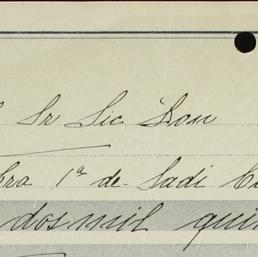 Sr Lic Don
bra 1ª de Sadi
dos mil